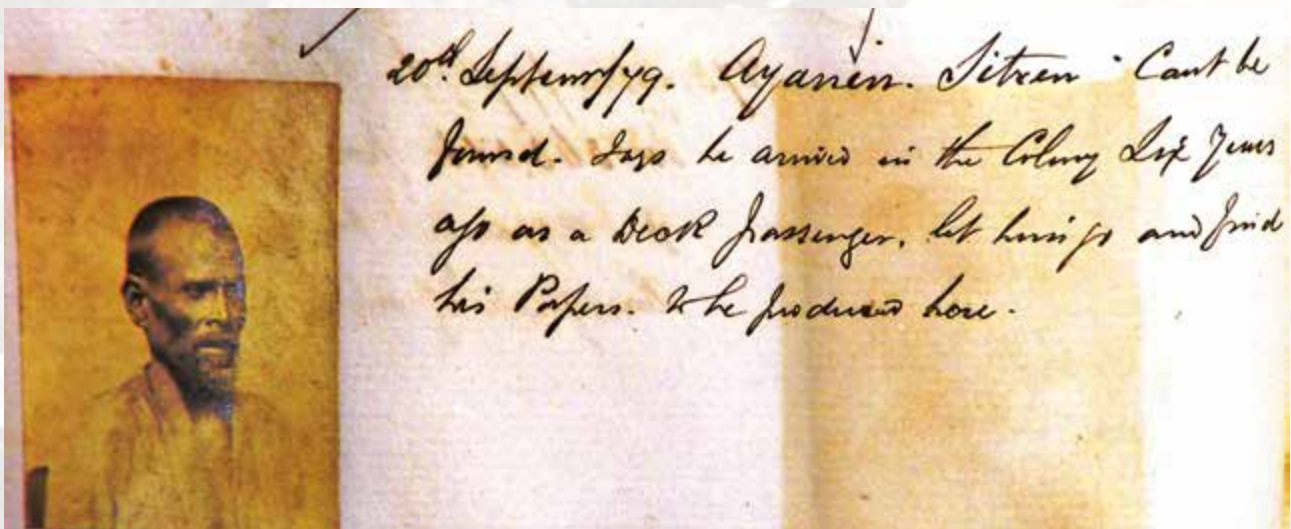 20th September/79. Ayanen. Sitzen Cant be
found. Says he arrived in the Colony Six Years
ago as a Deck Passenger. let him go and find
his Papers. to be produced here.